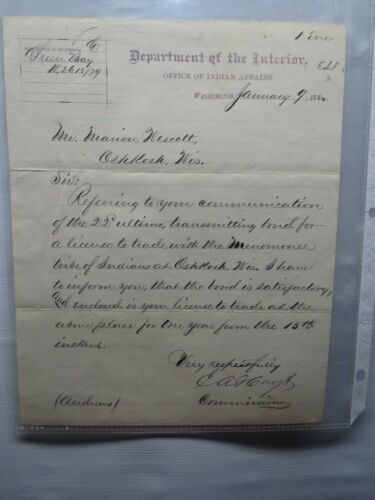 1 Enc
E
Green Bay
W. 2615/79
Department of the Interior,
OFFICE OF INDIAN AFFAIRS,
WASHINGTON, January 9, 1880
Mr. Marion Wescott,
Oshkosh, Wis.
Sir:
Referring to your communication
of the ultimo, transmitting bond for
a license to trade with the Menomonee
tribe of Indians at Oshkosh, Wis. I have
to inform you, that the bond is satisfactory,
and enclosed is your license to trade at the
above place for one year from the 15th
instant.
Very respectfully
E A Hayt
Commissioner
(Andrus)